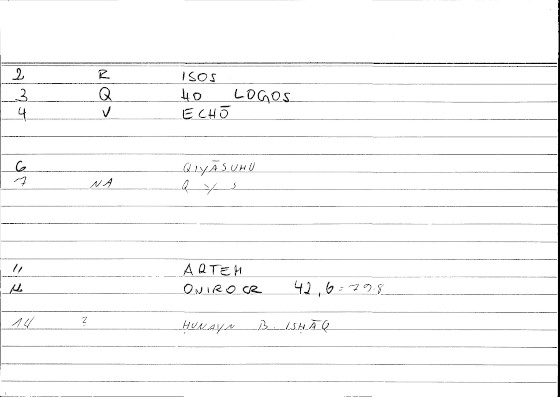 2 R ISOS
3 Q HO LOGOS
4 V ECHŌ
6 QIYĀSUHU
7 NA Q Y S
11 ARTEM
12 ONIROCR 42,6 = 79.8
14 ? ḤUNAYN B. ISḤĀQ